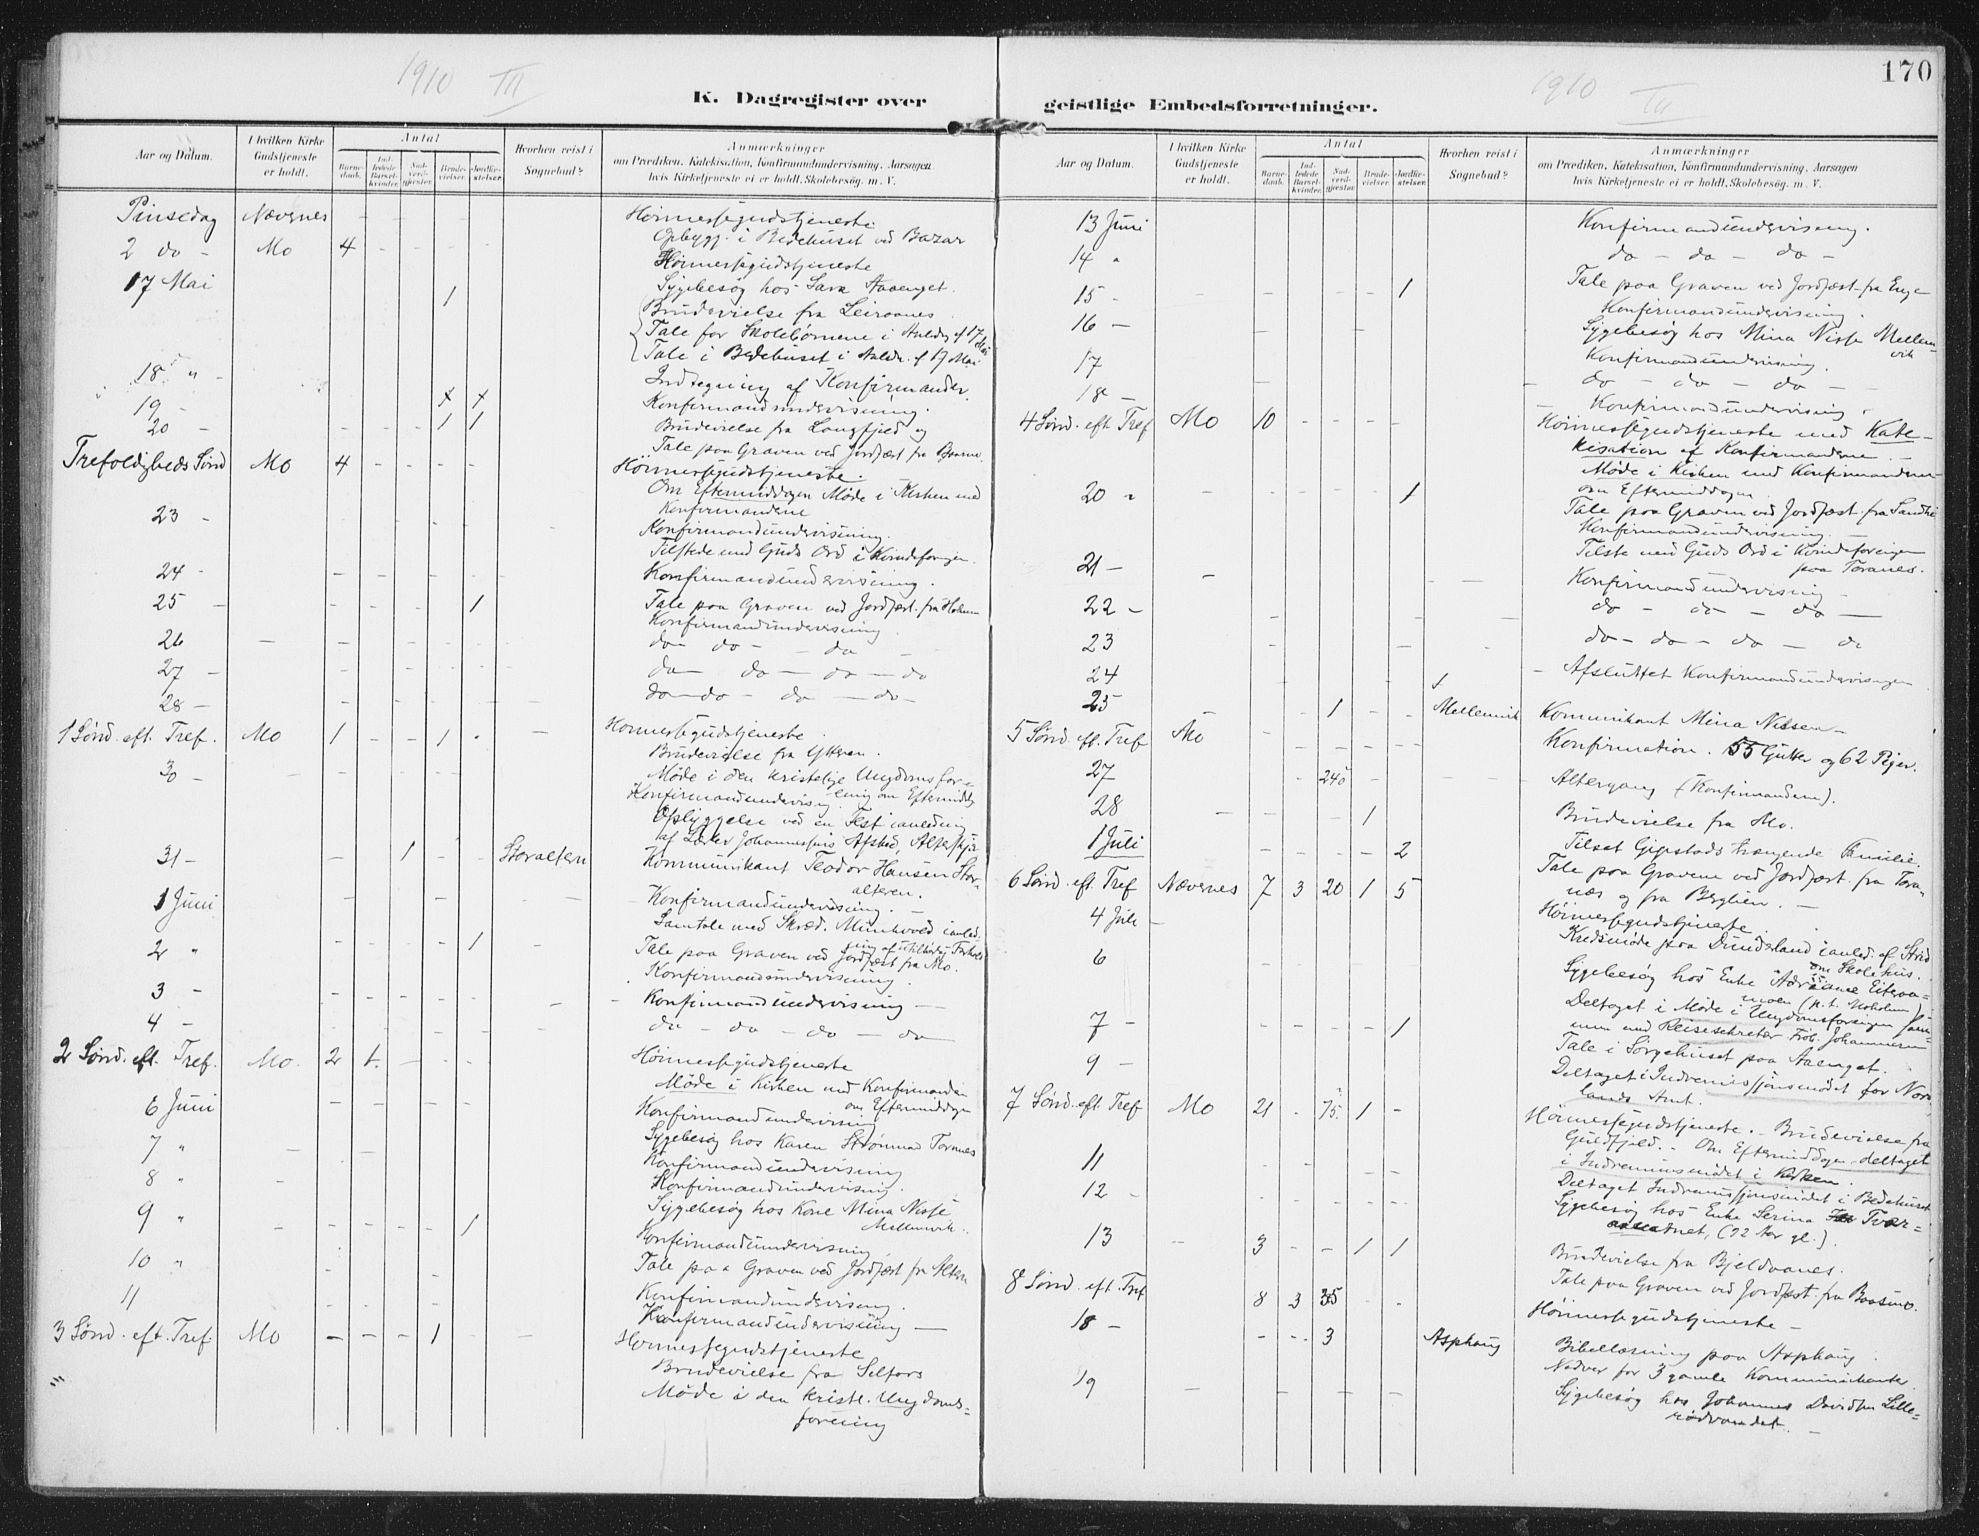 1910 III
K. Dagregister over
Aar og Datum.
I hvilken Kirke
Gudstjeneste
er holdt.
Antal
Barne-
daab.
Ind-
ledede
Barsel-
kvinder.
Nad-
verd-
gjæster.
Brude-
vielser.
Jordfæ-
stelser.
Hvorhen reist i
Sognebud?
Anmærkninger
om Prædiken, Katekisation, Konfirmandundervisning, Aarsagen
hvis Kirketjeneste ei er holdt, Skolebesøg, m. V.
Pinsedag Nævernes Høimessegudstjeneste
Opbygg. i Bedehuset ved Bazar
2 do - Mo 4 Høimessegudstjeneste
Sygebesøg hos Sara Aaenget.
17 Mai 1 Brudevielse fra Leiraanes.
Tale for Skolebørnene i Anledn. af 17 Mai
Tale i Bedehuset i Anledn. af 17 Mai
18 " - Indtegning af Konfirmander.
19 - Konfirmandundervisning.
20 - 1 1 Brudevielse fra Langfjeld og
Tale paa Graven ved Jordfæst. fra
Trefoldigheds Sønd Mo 4 Høimessegudstjeneste
Om Eftermiddagen Møde i Kirken med
Konfirmanderne
23 - Konfirmandundervisning.
Tilstede med Guds Ord i Kvindeforeningen.
24 - Konfirmandundervisning.
25 - 1 Tale paa Graven ved Jordfæst. fra
Konfirmandundervisning.
26 - do - do - do -
27 - do - do - do - do
28 - do - do - do - do -
1 Sønd. eft. Tref. Mo 1 - - 1 Høimessegudstjeneste.
Brudevielse fra Ytteren.
Møde i den kristelige Ungdomsfore-
ning om Eftermiddg
30 - Konfirmandundervisng.
Opbyggelse ved en Fest i anledning
af Lærer Johannessens Afsked,
31 - 1 Storalteren Kommunikant Teodor Hansen Stor-
alteren.
1 Juni Konfirmandundervisning. -
Samtale med Skræd. i anled-
2 " 1 Tale paa Graven ved Jordfæst fra Mo.
Konfirmandundervisning.
3 - Konfirmandundervisning -
4 - do - do - do - do
2 Sønd. eft. Tref. Mo. 2 1. Høimessegudstjeneste
Møde i Kirken med Konfirmanden
om Eftermiddagen
6 Juni Konfirmandundervisning
Sygebesøg hos Karen Strømmad Toranes
7 " Konfirmandundervisning
8 " Konfirmandundervisning.
Sygebesøg hos Kone Mina Nisse
Mellemvik.
9 " 1 Konfirmandundervisning
Tale paa Graven ved Jordfæst fra Alteren
10 " Konfirmandundervisning.
11 Konfirmandundervisning -
3 Sønd. eft. Tref. Mo - - - 1 - Høimessegudstjeneste
Brudevielse fra Selfors
Møde i den Kristl. Ungdoms=
forening
1910 III
170
geistlige Embedsforretninger.
Aar og Datum.
I hvilken Kirke
Gudstjeneste
er holdt.
Antal
Barne-
daab.
Ind-
ledede
Barsel-
kvinder.
Nad-
verd-
gjæster.
Brude-
vielser.
Jordfæ-
stelser.
Hvorhen reist i
Sognebud?
Anmærkninger
om Prædiken, Katekisation, Konfirmandundervisning, Aarsagen
hvis Kirketjeneste ei er holdt, Skolebesøg, m. V.
13 Juni Konfirmandundervisning.
14 " do - do - do -
15 - 1 Tale paa Graven ved Jordfæst. fra Enge
Konfirmandundervisning.
16 - Sygebesøg hos Mina Nisse Mellem-
vik
Konfirmandundervisning.
17 do - do - do -
18 - Konfirmandundervisning.
4 Sønd. eft. Tref Mo 10 Høimessegudstjeneste med Kate-
kisation af Konfirmanderne. -
Møde i Kirken med Konfirmanderne
om Eftermiddagen.
20 " 1 Tale paa Graven ved Jordfæst. fra
Konfirmandundervisning. -
Tilste med Guds Ord i Kvindeforeningen
paa Toranes.
21 - Konfirmandundervisning -
22 - do - do - do -
23 do - do - do - do
24 - Afsluttet Konfirmandundervisningen
25 1 Mellemvik Kommunikant Mina Nilsen -
5 Sønd. eft. Tref Mo Konfirmation. 55 Gutter og 62 Piger.
27 240 Altergang (Konfirmanderne).
28 1 Brudevielse fra Mo.
1 Juli 2 Tilset Familie.
Tale paa Gravene ved Jordfæst. fra Tora-
næs og fra
6 Sønd. eft. Tref Nævernes 7 3 20 1 5 Høimessegudstjeneste.
4 Juli - Kredsmøde paa Dunderland i anled. af Strid
om Skolehus.
6 Sygebesøg hos Enke
moen (p. t. Moholmen)
Deltaget i Møde i Ungdomsforeningen
med Reisesekretær Frøk. Johannesen
7 - 1 Tale i Sørgehuset paa Aaenget.
9 - Deltaget i Indremissjonsmødet for Nor-
lands Amt.
7 Sønd. eft. Tref Mo 21 - 75. 1 - Høimessegudstjeneste. - Brudevielse fra
Guldfjeld. - Om Eftermiddagen deltaget
i Indremissmødet i Kirken.
11 Deltaget Indremissjonsmødet i Bedehuset
12 - Sygebesøg hos Enke Serina
(92 Aar gl.).
13 3 - - 1 1 Brudevielse fra Bjeldaanes.
Tale paa Graven ved Jordfæst. fra Baasmo.
8 Sønd. eft. Tref 8 3 35 Høimessegudstjeneste -
18 - 3 Asphaug Bibellæsning paa Asphaug.
Nadver for 3 gamle Kommunikanter
19 Sygebesøg hos Johannes Davidsen Lille=
rødvandet. -